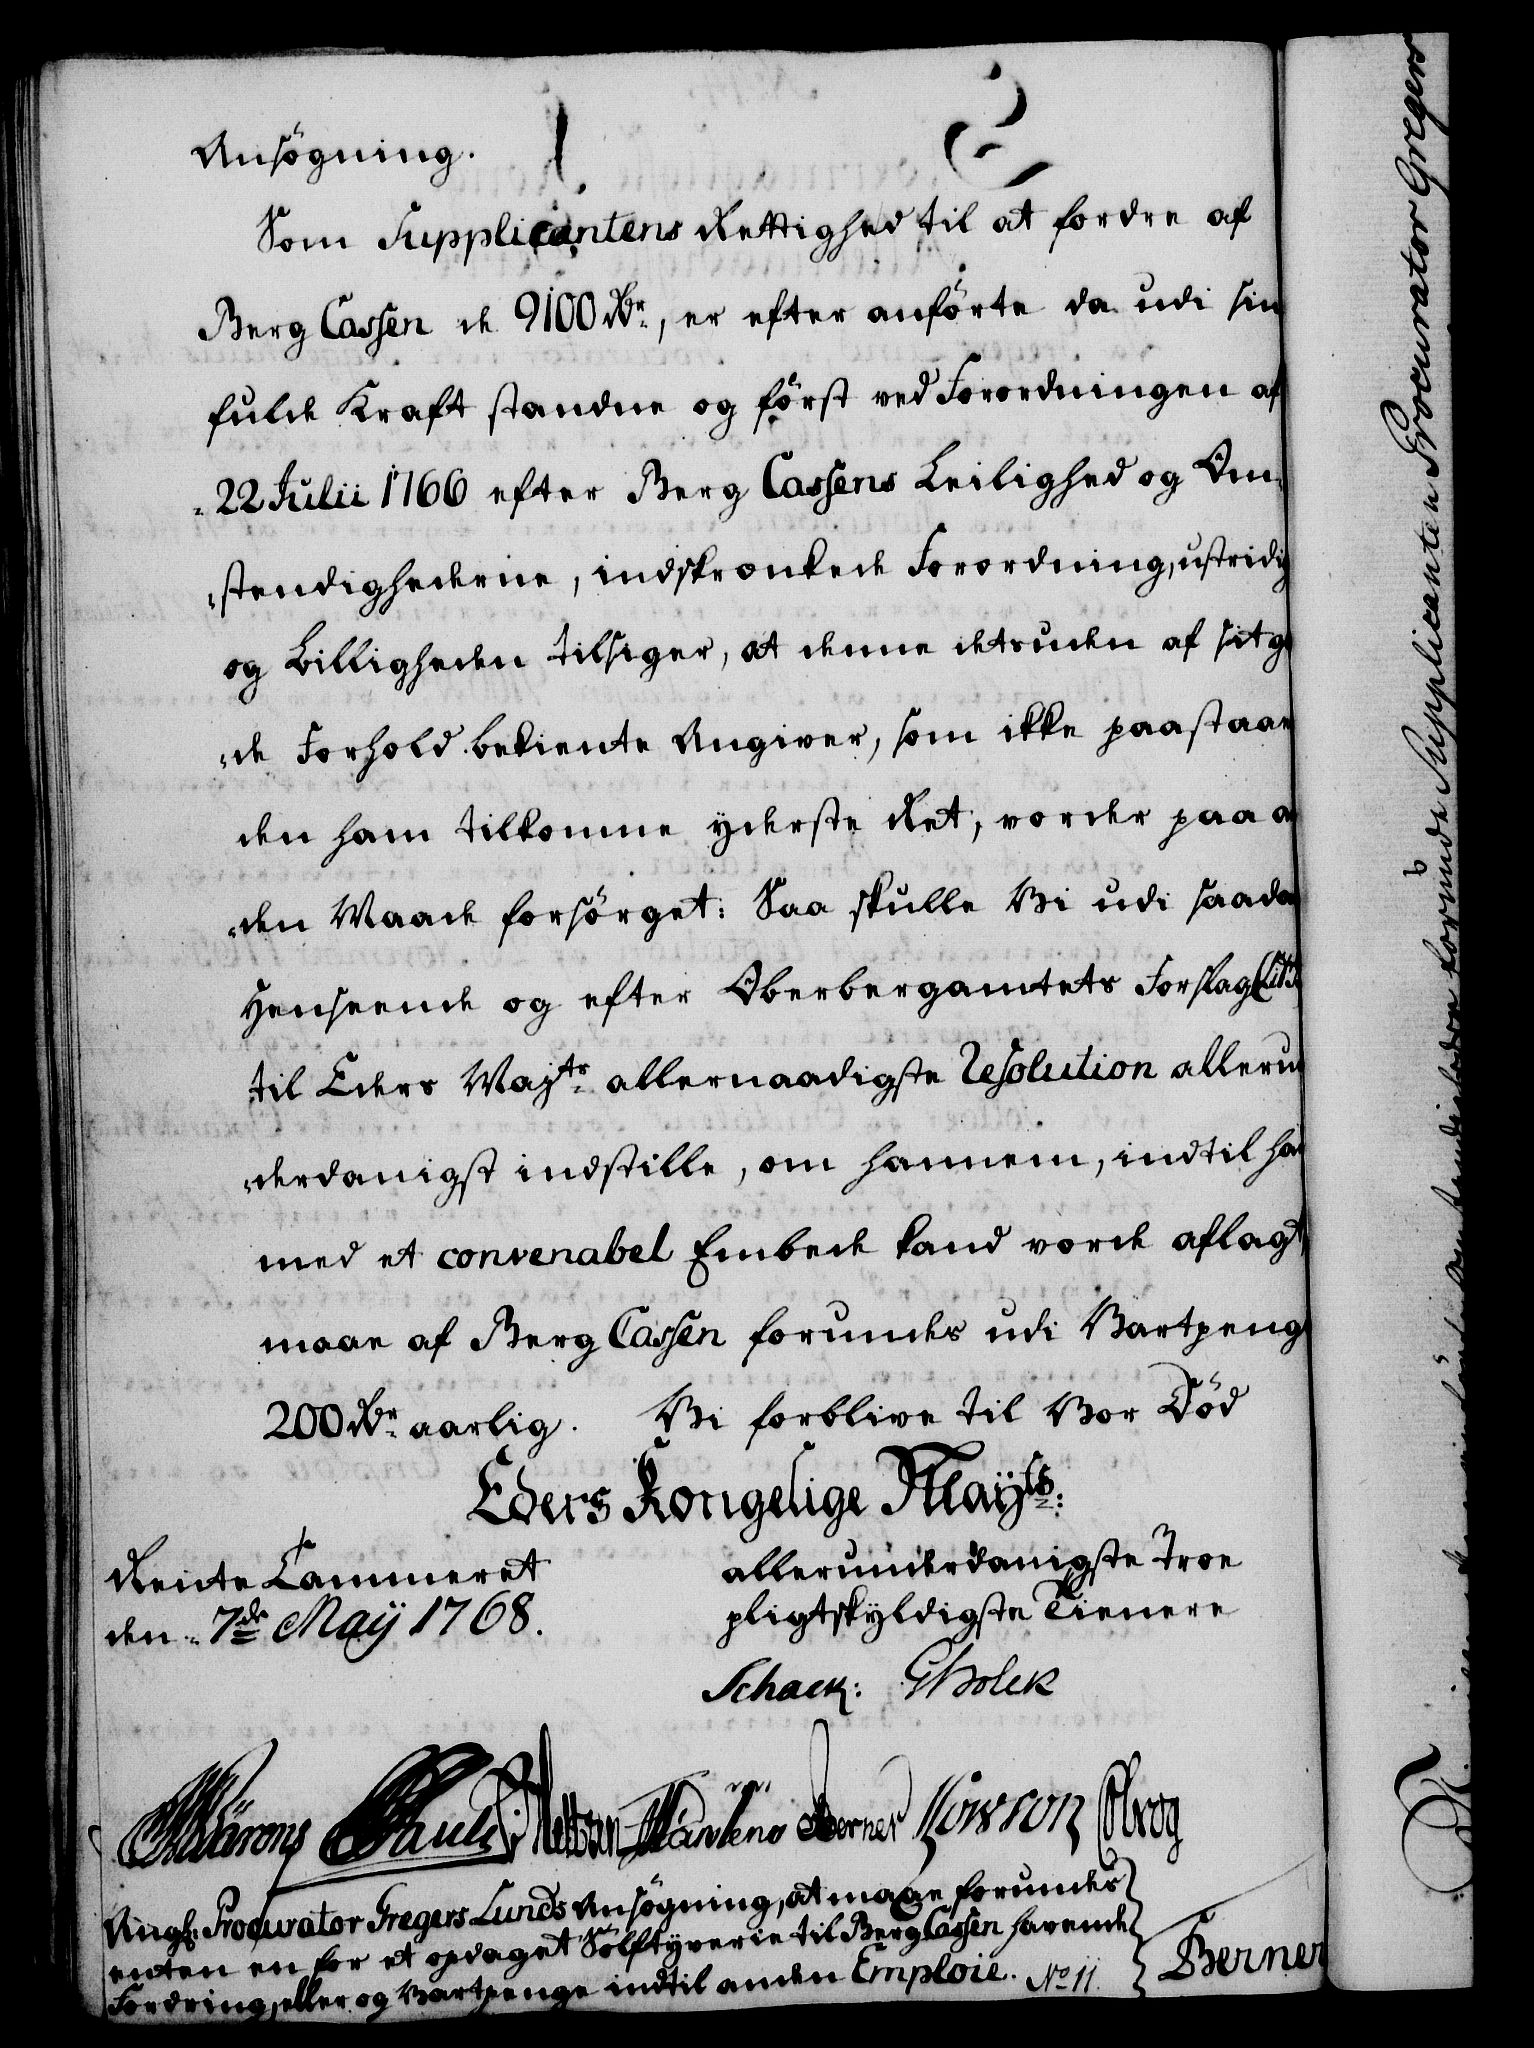 Ansøgning.
Som Supplicantens Rettighed til at fordre af
Berg Cassen de 9100 Rdr, er efter anførte da udi sin
fulde Kraft standne og først ved Forordningen af
22 Julii 1766 efter Berg Cassens Leilighed og Om-
„stændighederne, indskrænkede Forordning, ustridig
og Billigheden tilsiger, at denne desuden af sit go
„de Forhold bekiente Angiver, som ikke paastaae
den ham tilkomne yderste Ret, vorder paa a
„den Maade forsørget: Saa skulle Vi udi saada
Henseende og efter Oberbergamtets Forslag (Lit:
til Eders Mayts allernaadigste Resolution alleru
„derdanigst indstille, om hannem, indtil ha
med et convenabel Embede kand vorde aflagt,
maae af Berg Cassen forundes udi Vartpeng
200 Rdr aarlig. Vi forblive til Vor Død
Eders Kongelige Mayts:
Rente Cammeret
den 7de Maÿ 1768.
allerunderdanigste Troe
pligtskyldigste Tienere
Schack: GHolck
Berner
Ang: Procurator Gregers Lunds Ansøgning, at maae forundes
enten en for et opdaget Sølftyverie til Berg Cassen havende
Fordring, eller og Vartpenge indtil anden Emploie. No 11.
Berner
Supplicanten Procurator Gregers